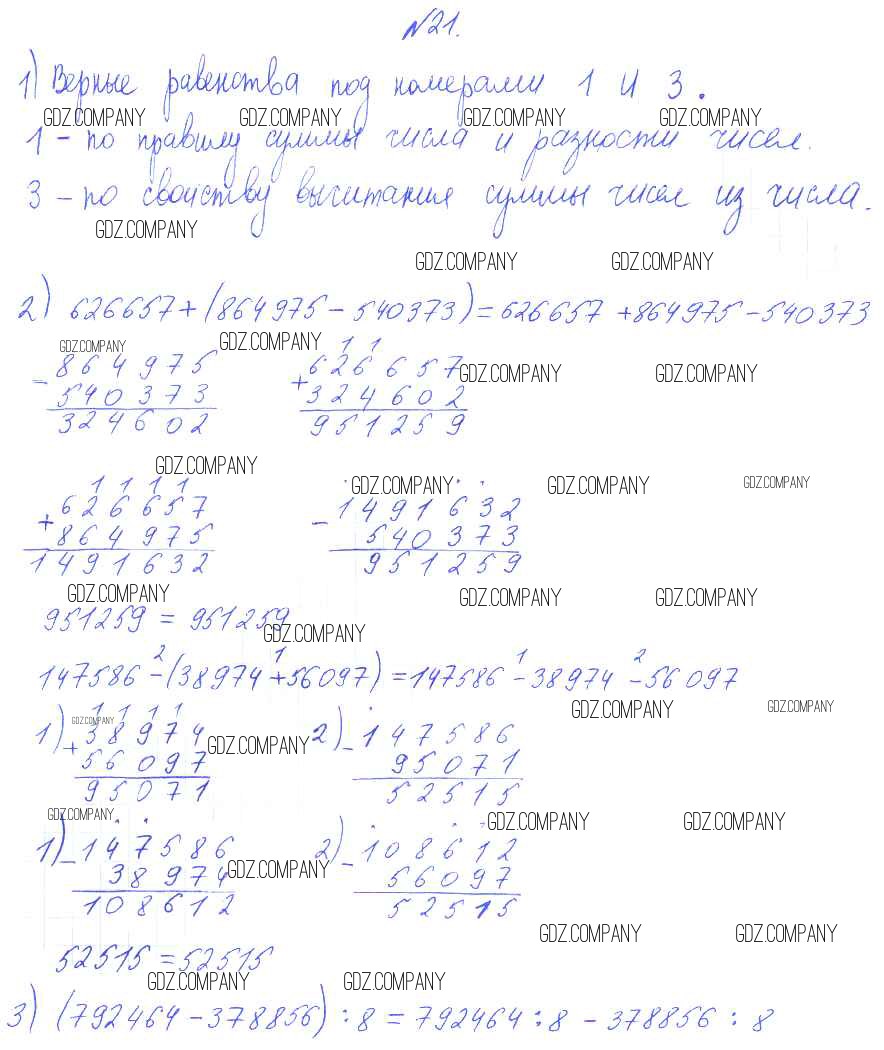 №21.
1) Верные равенства под номерами 1 и 3.
GDZ.COMPANY GDZ.COMPANY GDZ.COMPANY GDZ.COMPANY
1 – по правилу суммы числа и разности чисел.
3 – по свойству вычитания суммы чисел из числа.
GDZ.COMPANY
GDZ.COMPANY GDZ.COMPANY
2) 626657+(864975-540373)=626657+864975-540373
GDZ.COMPANY GDZ.COMPANY 1 1
- 864975 + 626657 GDZ.COMPANY GDZ.COMPANY
540373 324602
324602 951259
GDZ.COMPANY
1 1 1 1 GDZ.COMPANY GDZ.COMPANY GDZ.COMPANY
+ 626657 - 1491632
864975 540373
1491632 951259
GDZ.COMPANY GDZ.COMPANY GDZ.COMPANY
951259 = 951259
GDZ.COMPANY
2 1 1 2
147586-(38974+56097)=147586-38974-56097
GDZ.COMPANY GDZ.COMPANY
1 1 1 1
1) + 38974 2) - 147586
GDZ.COMPANY GDZ.COMPANY
56097 95071
95071 52515
GDZ.COMPANY GDZ.COMPANY GDZ.COMPANY
1) - 147586 2) - 108612
38974 56097
GDZ.COMPANY
108612 52515
GDZ.COMPANY GDZ.COMPANY
52515 = 52515
GDZ.COMPANY GDZ.COMPANY
3) (792464-378856):8=792464:8-378856:8